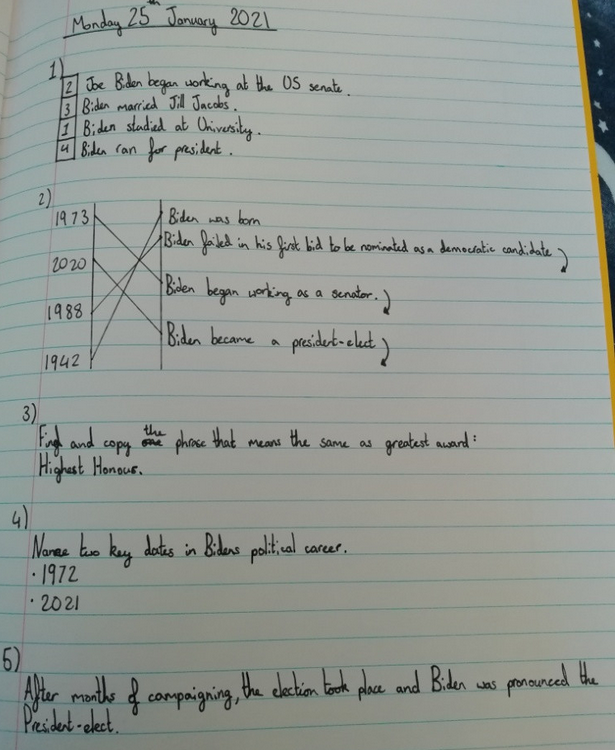 Monday 25th January 2021
1)
2 Joe Biden began working at the US senate.
3 Biden married Jill Jacobs.
1 Biden studied at University.
4 Biden ran for president.
2)
1973 Biden was born
Biden failed in his first bid to be nominated as a democratic candidate
2020
Biden began working as a senator.
1988
Biden became a president-elect
1942
3)
Find and copy the one phrase that means the same as greatest award:
Highest Honour.
4)
Name two key dates in Bidens political career.
· 1972
· 2021
5)
After months of campaigning, the election took place and Biden was pronounced the
President-elect.